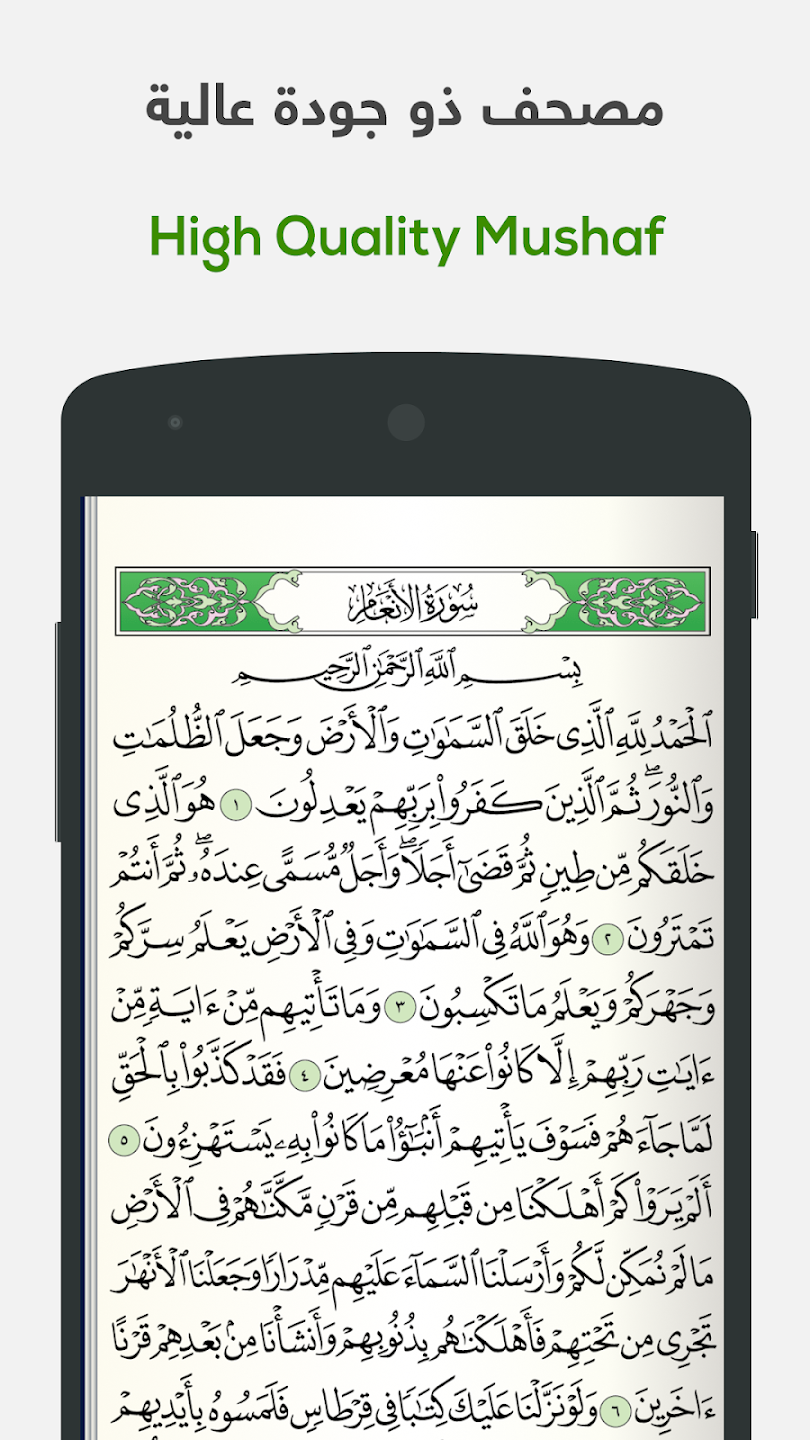 مصحف ذو جودة عالية
High Quality Mushaf
سُورَةُ الأَنْعَامِ
بِسْمِ ٱللَّهِ ٱلرَّحْمَٰنِ ٱلرَّحِيمِ
ٱلْحَمْدُ لِلَّهِ ٱلَّذِى خَلَقَ ٱلسَّمَٰوَٰتِ وَٱلْأَرْضَ وَجَعَلَ ٱلظُّلُمَٰتِ
وَٱلنُّورَ ۖ ثُمَّ ٱلَّذِينَ كَفَرُوا۟ بِرَبِّهِمْ يَعْدِلُونَ ١ هُوَ ٱلَّذِى
خَلَقَكُم مِّن طِينٍ ثُمَّ قَضَىٰٓ أَجَلًا ۖ وَأَجَلٌ مُّسَمًّى عِندَهُۥ ۖ ثُمَّ أَنتُمْ
تَمْتَرُونَ ٢ وَهُوَ ٱللَّهُ فِى ٱلسَّمَٰوَٰتِ وَفِى ٱلْأَرْضِ يَعْلَمُ سِرَّكُمْ
وَجَهْرَكُمْ وَيَعْلَمُ مَا تَكْسِبُونَ ٣ وَمَا تَأْتِيهِم مِّنْ ءَايَةٍ مِّنْ
ءَايَٰتِ رَبِّهِمْ إِلَّا كَانُوا۟ عَنْهَا مُعْرِضِينَ ٤ فَقَدْ كَذَّبُوا۟ بِٱلْحَقِّ
لَمَّا جَآءَهُمْ فَسَوْفَ يَأْتِيهِمْ أَنۢبَٰٓؤُا۟ مَا كَانُوا۟ بِهِۦ يَسْتَهْزِءُونَ ٥
أَلَمْ يَرَوْا۟ كَمْ أَهْلَكْنَا مِن قَبْلِهِم مِّن قَرْنٍ مَّكَّنَّٰهُمْ فِى ٱلْأَرْضِ
مَا لَمْ نُمَكِّن لَّكُمْ وَأَرْسَلْنَا ٱلسَّمَآءَ عَلَيْهِم مِّدْرَارًا وَجَعَلْنَا ٱلْأَنْهَٰرَ
تَجْرِى مِن تَحْتِهِمْ فَأَهْلَكْنَٰهُم بِذُنُوبِهِمْ وَأَنشَأْنَا مِنۢ بَعْدِهِمْ قَرْنًا
ءَاخَرِينَ ٦ وَلَوْ نَزَّلْنَا عَلَيْكَ كِتَٰبًا فِى قِرْطَاسٍ فَلَمَسُوهُ بِأَيْدِيهِمْ